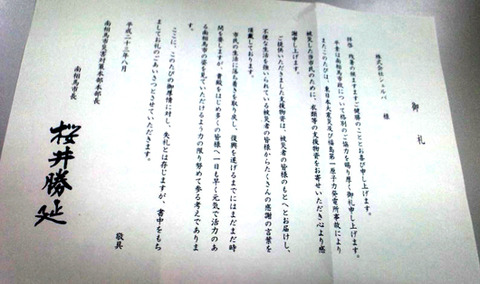 御礼
株式会社シェルパ 様
拝啓 残暑の候ますますご健勝のこととお喜び申し上げます。
平素は南相馬市政について格別のご協力を賜り厚く御礼申し上げます。
またこのたびは、東日本大震災及び福島第一原子力発電所事故により
被災した当市民のために、衣類等の支援物資をお寄せいただき心より感
謝申し上げます。
ご提供いただきました支援物資は、被災者の皆様のもとへとお届けし、
不便な生活を強いられている被災者の皆様からたくさんの感謝の言葉を
頂戴しております。
市民の生活に落ち着きを取り戻し、復興を遂げるまでにはまだまだ時
間を要しますが、貴殿をはじめ多くの皆様へ一日も早く元気で活力のあ
る南相馬市の姿を見ていただけるよう力の限り努めて参る考えでありま
す。
ここに、このたびの御厚情に対し、失礼とは存じますが、書中をもち
ましてお礼のごあいさつとさせていただきます。
敬具
平成二十三年八月
南相馬市災害対策本部本部長
南相馬市長
桜井勝延